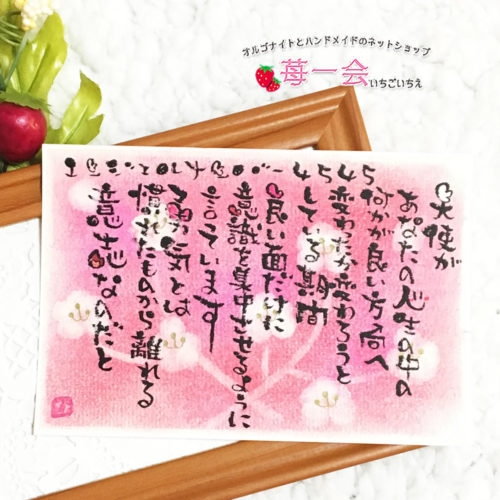 オルゴナイトとハンドメイドのネットショップ
苺一会 いちごいちえ
エンジェルナンバー 4545
天使が
あなたの人生の中の
何かが良い方向へ
変わったか変わろうと
している期間
良い面だけに
意識を集中させるように
言っています
勇気とは
慣れたものから離れる
意志なのだと